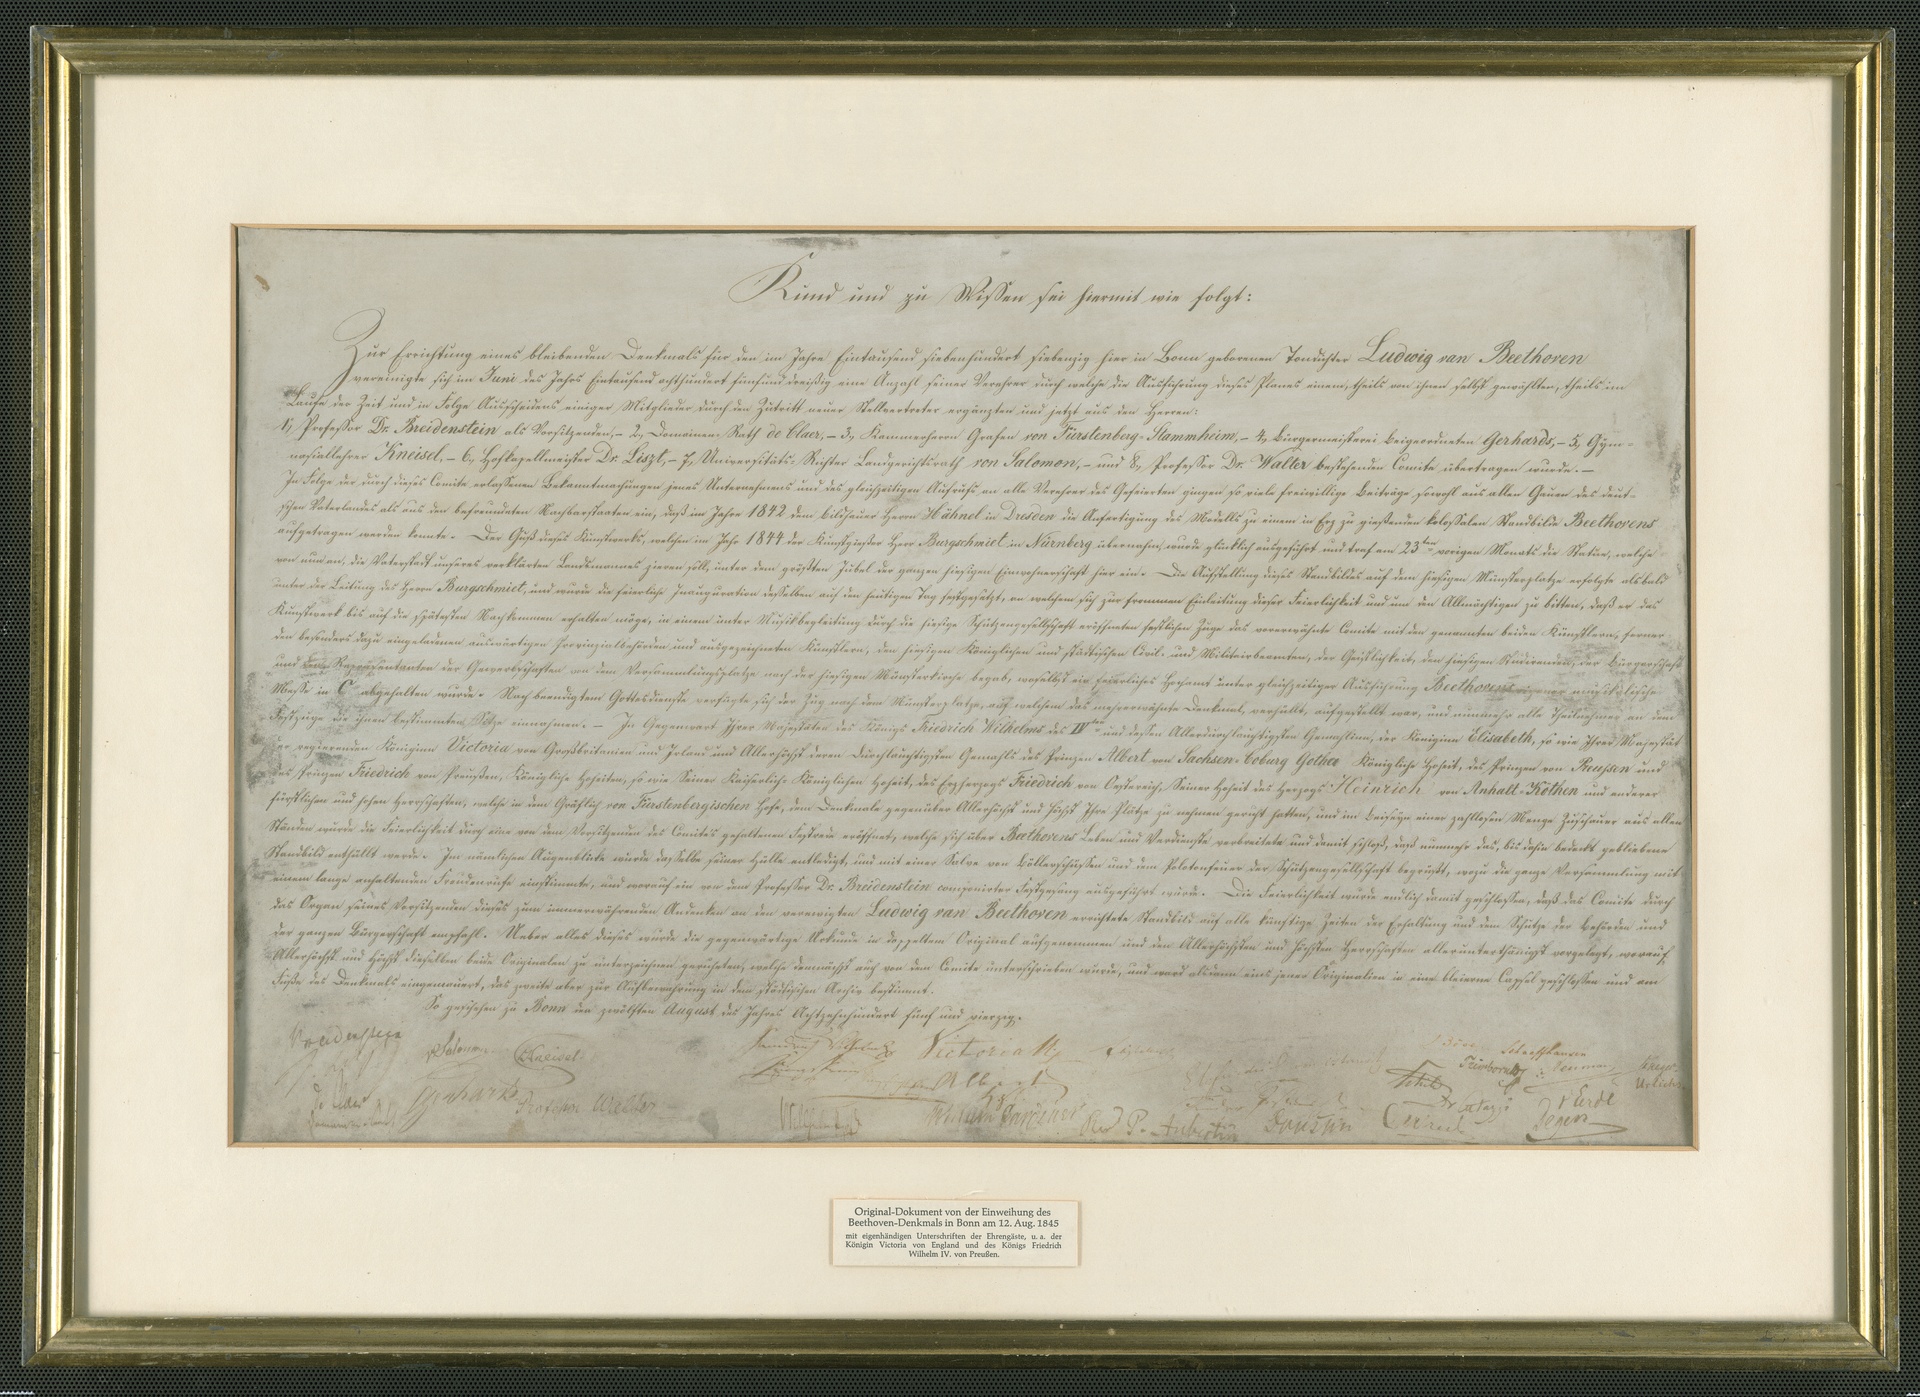 Kund und zu Wissen sei hiermit wie folgt:
Zur Errichtung eines bleibenden Denkmals für den im Jahre Eintausend siebenhundert siebenzig hier in Bonn geborenen Tondichter Ludwig van Beethoven
vereinigte sich im Juni des Jahrs Eintausend achthundert fünfunddreißig eine Anzahl seiner Verehrer durch welche die Ausführung dieses Planes einem, theils von ihnen selbst gewählten, theils im
Laufe der Zeit und in Folge Ausscheidens einiger Mitglieder durch den Zutritt neuer Stellvertreter ergänzten und jetzt aus den Herren:
1, Professor Dr. Breidenstein als Vorsitzenden, – 2, Domainen-Rath de Claer, – 3, Kammerherrn Grafen von Fürstenberg-Stammheim, – 4, Bürgermeisterei Beigeordneten Gerhards, – 5, Gym-
nasiallehrer Kneisel, – 6, Hofkapellmeister Dr. Liszt, – 7, Universitäts-Richter Landgerichtsrath von Salomon, – und 8, Professor Dr. Walter bestehenden Comite übertragen wurde. –
In Folge der durch dieses Comite erlassenen Bekanntmachungen jenes Unternehmens und des gleichzeitigen Aufrufs an alle Verehrer des Gefeierten gingen so viele freiwillige Beiträge sowohl aus allen Gauen des deut-
schen Vaterlandes als aus den befreundeten Nachbarstaaten ein, daß im Jahre 1842 dem Bildhauer Herrn Hähnel in Dresden die Anfertigung des Modells zu einem in Erz zu gießenden kolossalen Standbilde Beethovens
aufgetragen werden konnte. Der Guß dieses Kunstwerks, welchen im Jahr 1844 der Kunstgießer Herr Burgschmiet in Nürnberg übernahm, wurde glücklich ausgeführt und traf am 23ten vorigen Monats die Statue, welche
von nun an, die Vaterstadt unseres verklärten Landsmannes zieren soll, unter dem größten Jubel der ganzen hiesigen Einwohnerschaft hier ein. Die Aufstellung dieses Standbildes auf dem hiesigen Münsterplatze erfolgte alsbald
unter der Leitung des Herrn Burgschmiet, und wurde die feierliche Inauguration desselben auf den heutigen Tag festgesetzt, an welchem sich zur frommen Einleitung dieser Feierlichkeit und um den Allmächtigen zu bitten, daß er das
Kunstwerk bis auf die spätesten Nachkommen erhalten möge, in einem unter Musikbegleitung durch die hiesige Schützengesellschaft eröffneten festlichen Zuge das vorerwähnte Comite mit den genannten beiden Künstlern, ferner
den besonders dazu eingeladenen auswärtigen Provinzialbehörden und ausgezeichneten Künstlern, den hiesigen Königlichen und städtischen Civil- und Militairbeamten, der Geistlichkeit, den hiesigen Studirenden, der Bürgerschaft
und den Repräsentanten der Gewerbschaften von dem Versammlungsplatze nach der hiesigen Münsterkirche begab, woselbst ein feierliches Hochamt unter gleichzeitiger Ausführung Beethovens eigener musikalischer
Messe in C abgehalten wurde. Nach beendigtem Gottesdienste verfügte sich der Zug nach dem Münsterplatze, auf welchem das mehrerwähnte Denkmal, verhüllt, aufgestellt war, und nunmehr alle Theilnehmer an dem
Festzuge die ihnen bestimmten Sitze einnahmen. – In Gegenwart Ihrer Majestäten des Königs Friedrich Wilhelms des IVten und dessen Allerdurchlauchtigsten Gemahlinn, der Königinn Elisabeth, so wie Ihrer Majestät
der regierenden Königinn Victoria von Großbritanien und Irland und Allerhöchst deren Durchlauchtigsten Gemahls des Prinzen Albert von Sachsen-Coburg Gotha Königliche Hoheit, des Prinzen von Preussen und
des Prinzen Friedrich von Preußen, Königliche Hoheiten, so wie Seiner Kaiserliche Königlichen Hoheit, des Erzherzogs Friedrich von Oesterreich, Seiner Hoheit des Herzogs Heinrich von Anhalt-Köthen und anderer
fürstlichen und hohen Herrschaften, welche in dem Gräflich von Fürstenbergischen Hofe, dem Denkmale gegenüber Allerhöchst und höchst Ihre Plätze zu nehmen geruht hatten, und im Beiseyn einer zahllosen Menge Zuschauer aus allen
Ständen wurde die Feierlichkeit durch eine von dem Vorsitzenden des Comites gehaltenen Festrede eröffnet, welche sich über Beethovens Leben und Verdienste verbreitete und damit schloß, daß nunmehr das, bis dahin bedeckt gebliebene
Standbild enthüllt werde. Im nämlichen Augenblicke wurde dasselbe seiner Hülle entledigt, und mit einer Salve von Böllerschüssen und dem Pelotonfeuer der Schützengesellschaft begrüßt, wozu die ganze Versammlung mit
einem lange anhaltenden Freudenrufe einstimmte, und worauf ein von dem Professor Dr. Breidenstein componirter Festgesang ausgeführt wurde. Die Feierlichkeit wurde endlich damit geschlossen, daß das Comite durch
das Organ seines Vorsitzenden dieses zum immerwährenden Andenken an den verewigten Ludwig van Beethoven errichtete Standbild auf alle künftige Zeiten der Erhaltung und dem Schutze der Behörden und
der ganzen Bürgerschaft empfahl. Ueber alles dieses wurde die gegenwärtige Urkunde in doppeltem Original aufgenommen und den Allerhöchsten und höchsten Herrschaften allerunterthänigst vorgelegt, worauf
Allerhöchst und höchst dieselben beide Originalen zu unterzeichnen geruheten, welche demnächst auch von dem Comite unterschrieben wurde, und ward alsdann eins jener Originalien in eine bleierne Capsel geschlossen und am
Fuße des Denkmals eingemauert, das zweite aber zur Aufbewahrung in dem städtischen Archiv bestimmt.
So geschehen zu Bonn den zwölften August des Jahres Achtzehnhundert fünf und vierzig.
Breidenstein
v Salomon Kneisel
Friedrich Wilhelm
Victoria R
de Claer
Gerhards
Professor Walter
Albert
Trimborn
Neumann
Original-Dokument von der Einweihung des
Beethoven-Denkmals in Bonn am 12. Aug. 1845
mit eigenhändigen Unterschriften der Ehrengäste, u. a. der
Königin Victoria von England und des Königs Friedrich
Wilhelm IV. von Preußen.